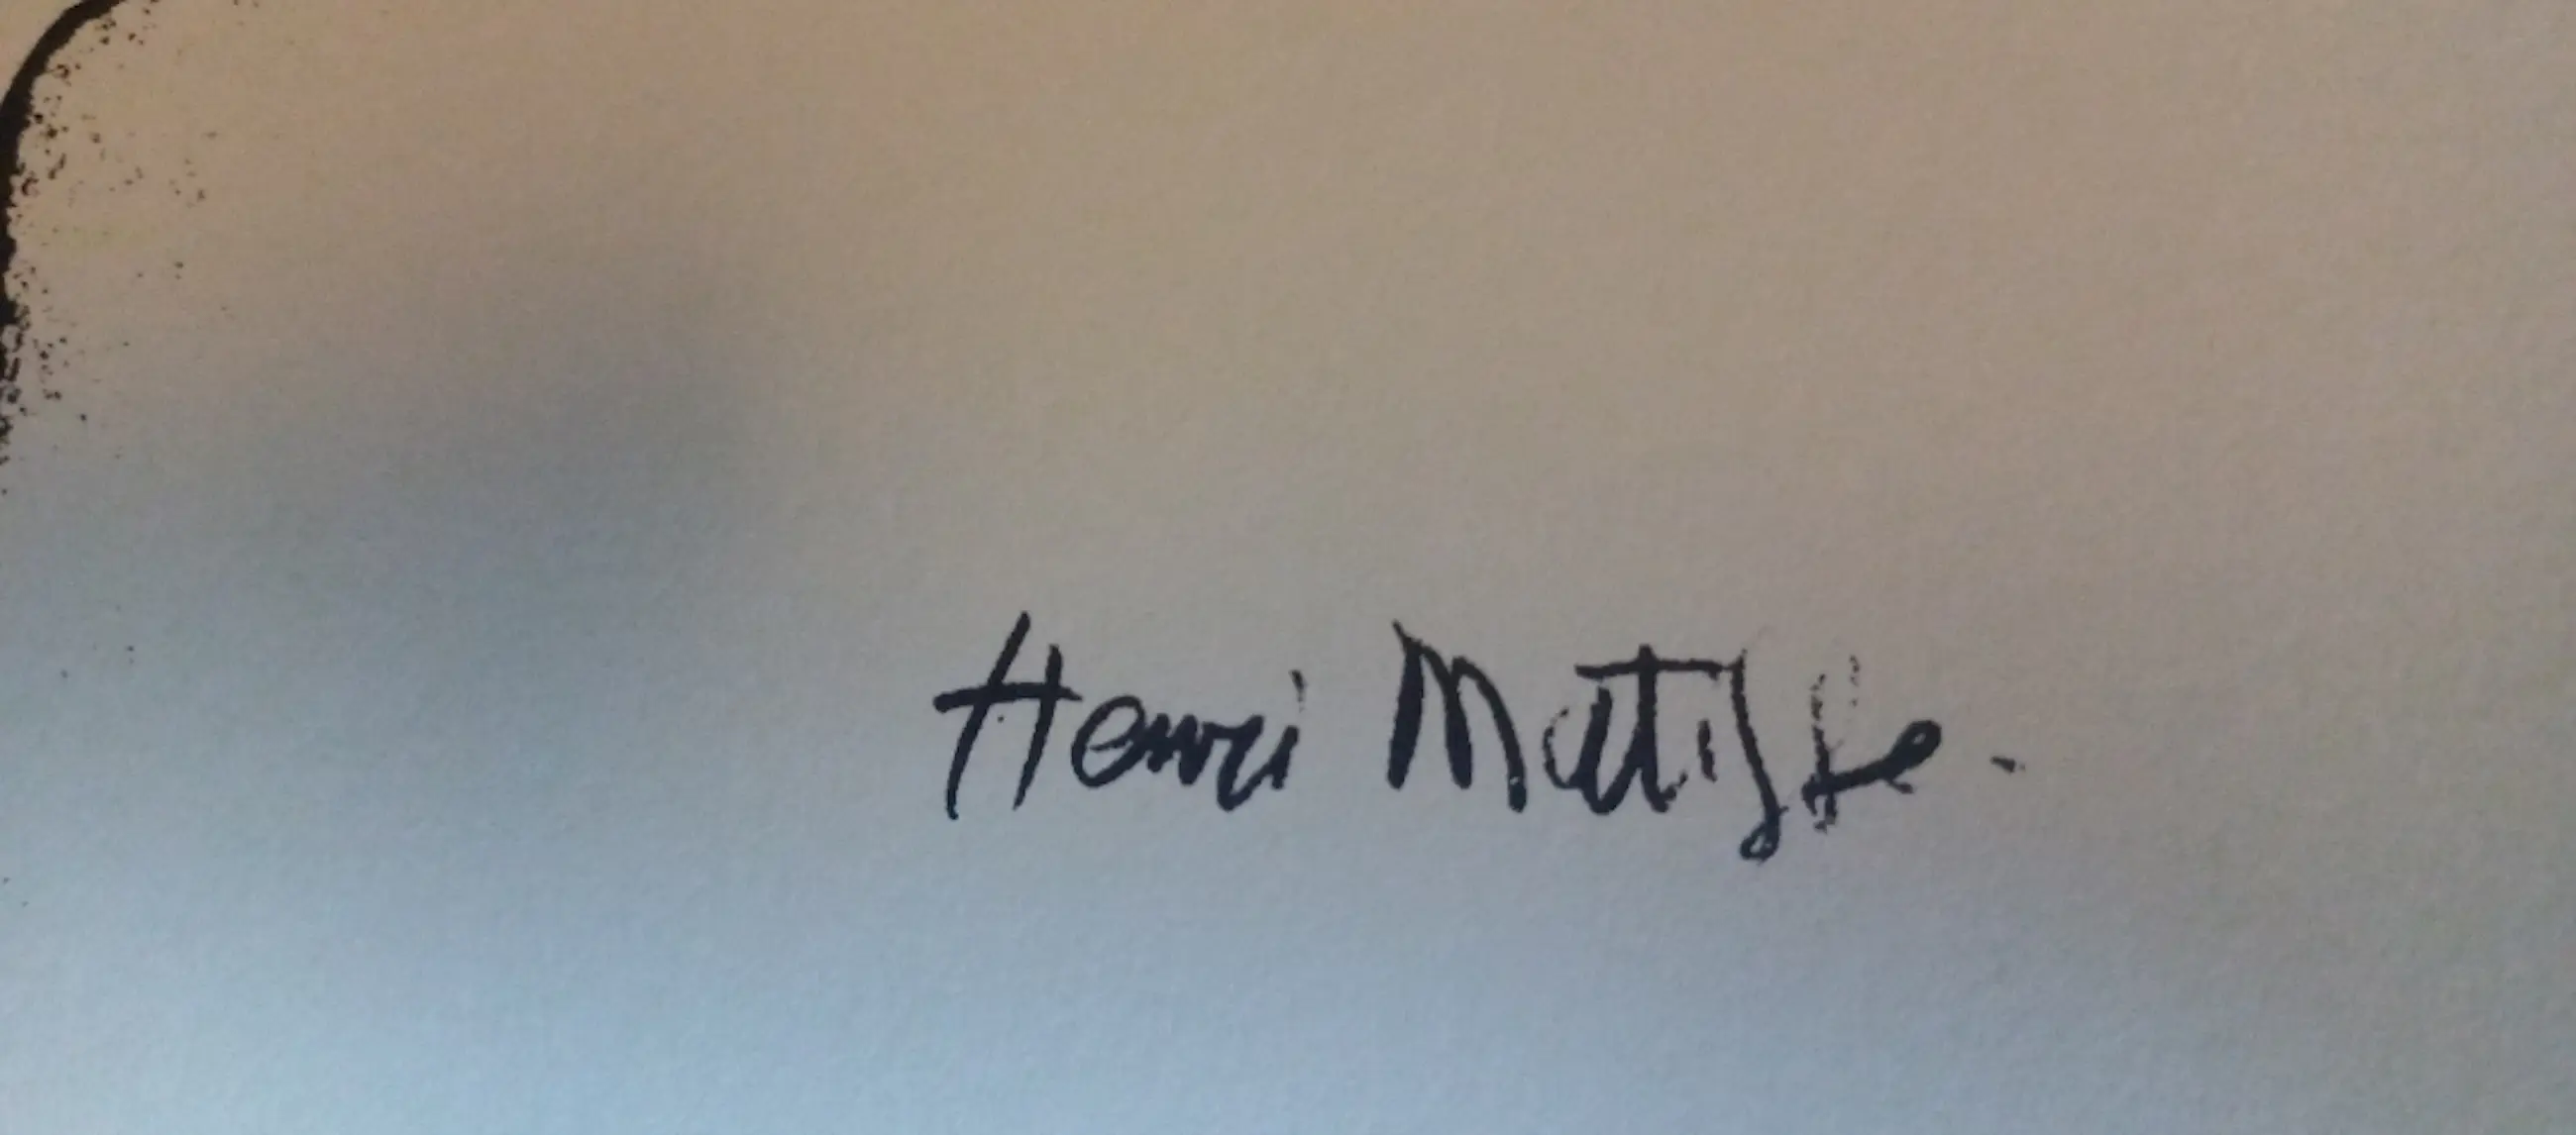 Henri Matisse.